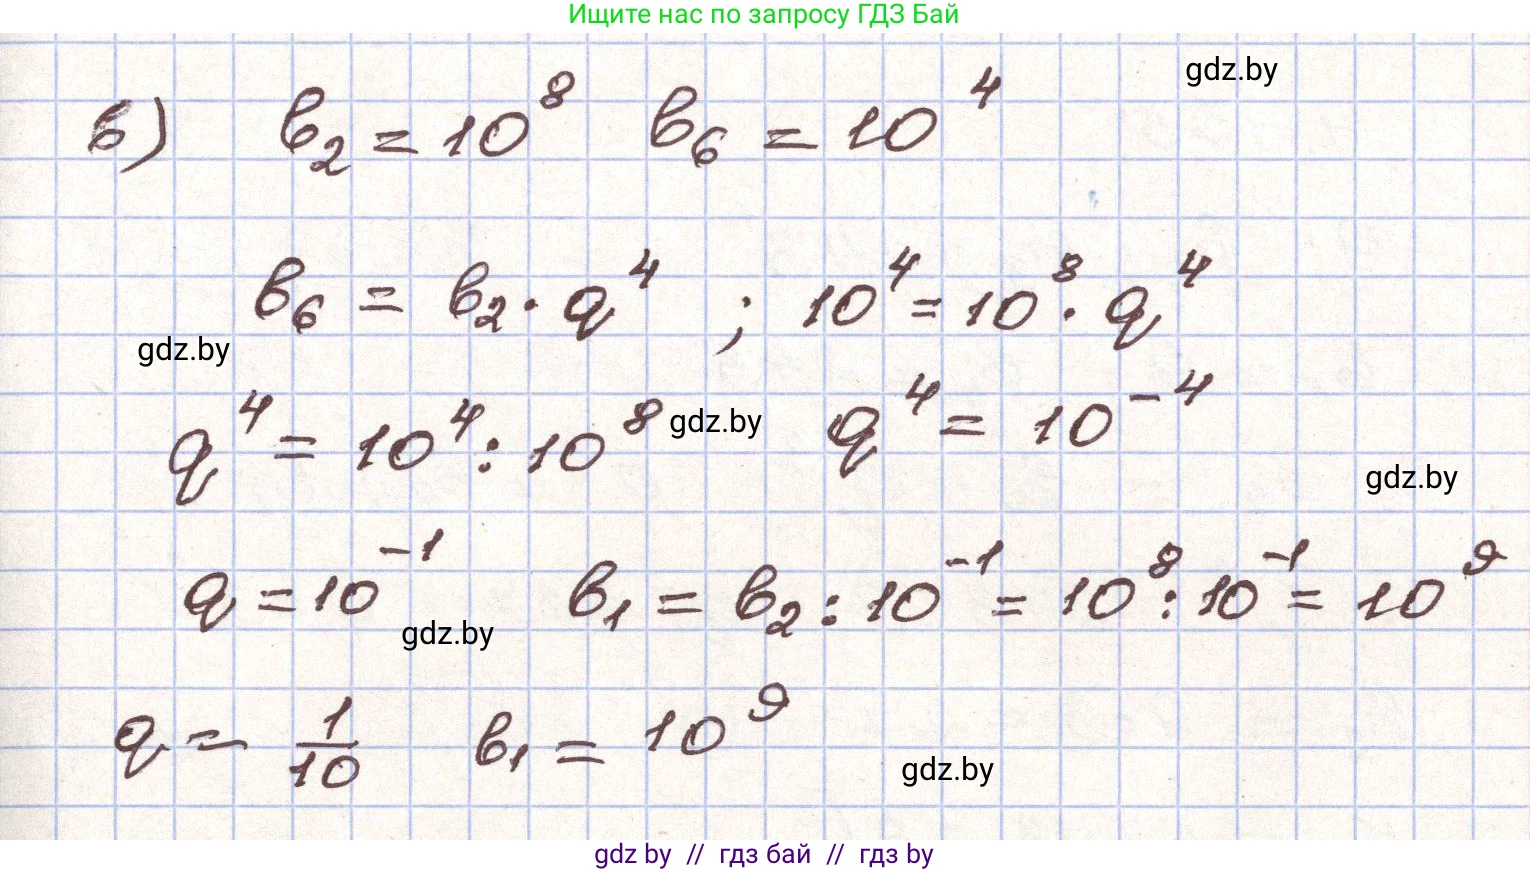 Ищите нас по запросу ГДЗ Бай
gdz.by
в) b₂ = 10⁸ b₆ = 10⁴
b₆ = b₂ · q⁴ ; 10⁴ = 10⁸ · q⁴
gdz.by
q⁴ = 10⁴ : 10⁸ gdz.by q⁴ = 10⁻⁴
gdz.by
q = 10⁻¹ b₁ = b₂ : 10⁻¹ = 10⁸ : 10⁻¹ = 10⁹
gdz.by
q = 1/10 b₁ = 10⁹
gdz.by
gdz by // гдз бай // гдз by